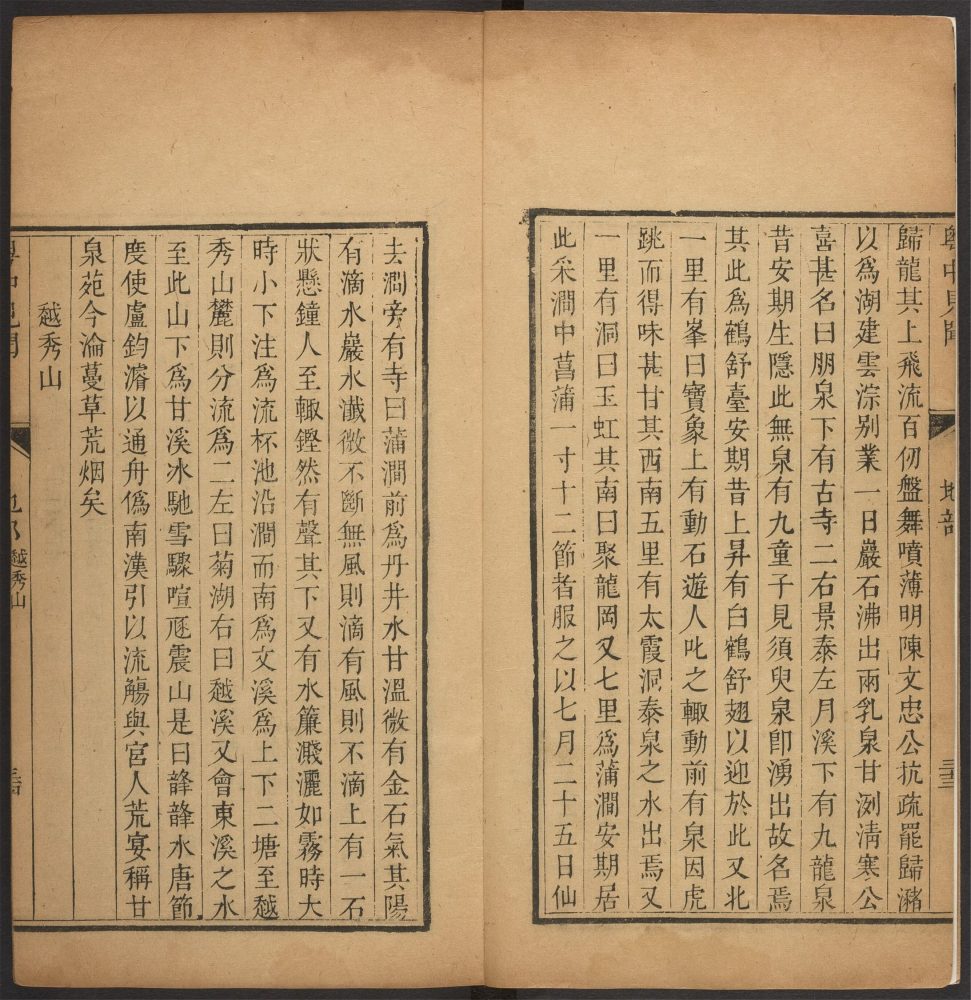 粵中見聞 地部 三三
歸龍其上飛流百仞盤舞噴薄明陳文忠公抗疏罷歸瀦
以為湖建雲淙别業一日巖石沸出兩乳泉甘冽淸寒公
喜甚名曰朋泉下有古寺二右景泰左月溪下有九龍泉
昔安期生隱此無泉有九童子見須臾泉卽湧出故名焉
其此為鶴舒臺安期昔上昇有白鶴舒翅以迎於此又北
一里有峯曰寶象上有動石遊人叱之輙動前有泉因虎
跳而得味甚甘其西南五里有太霞洞泰泉之水出焉又
一里有洞曰玉虹其南曰聚龍岡又七里為蒲澗安期居
此采澗中菖蒲一寸十二節者服之以七月二十五日仙
去澗旁有寺曰蒲澗前為丹井水甘溫微有金石氣其陽
有滴水巖水瀸微不斷無風則滴有風則不滴上有一石
狀懸鐘人至輙鏗然有聲其下又有水簾濺灑如霧時大
時小下注為流杯池沿澗而南為文溪為上下二塘至越
秀山麓則分流為二左曰菊湖右曰越溪又會東溪之水
至此山下為甘溪冰馳雪驟喧豗震山是曰韸韸水唐節
度使盧鈞濬以通舟僞南漢引以流觴與宮人荒宴稱甘
泉苑今淪蔓草荒烟矣
越秀山
粵中見聞 地部 越秀山